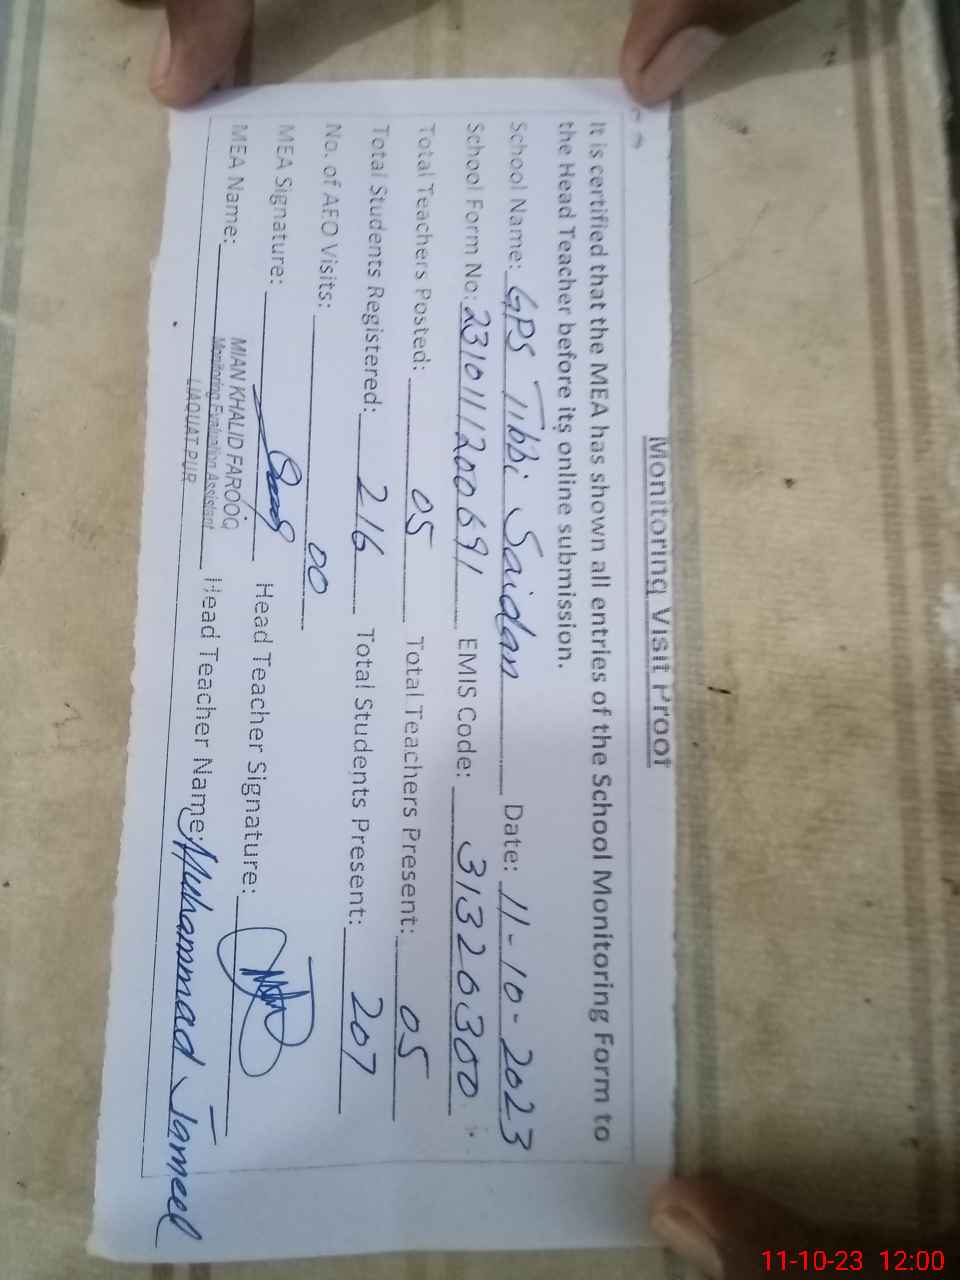 Monitoring Visit Proof
It is certified that the MEA has shown all entries of the School Monitoring Form to
the Head Teacher before its online submission.
School Name: GPS Tibbi Saidan Date: 11-10-2023
School Form No: 231011200691 EMIS Code: 31320300
Total Teachers Posted: 05 Total Teachers Present: 05
Total Students Registered: 216 Total Students Present: 207
No. of AEO Visits: 00
MEA Signature: Head Teacher Signature:
MEA Name: MIAN KHALID FAROOQ Head Teacher Name: Muhammad Jameel
Monitoring Evaluation Assistant
LIAQUAT PUR
11-10-23 12:00